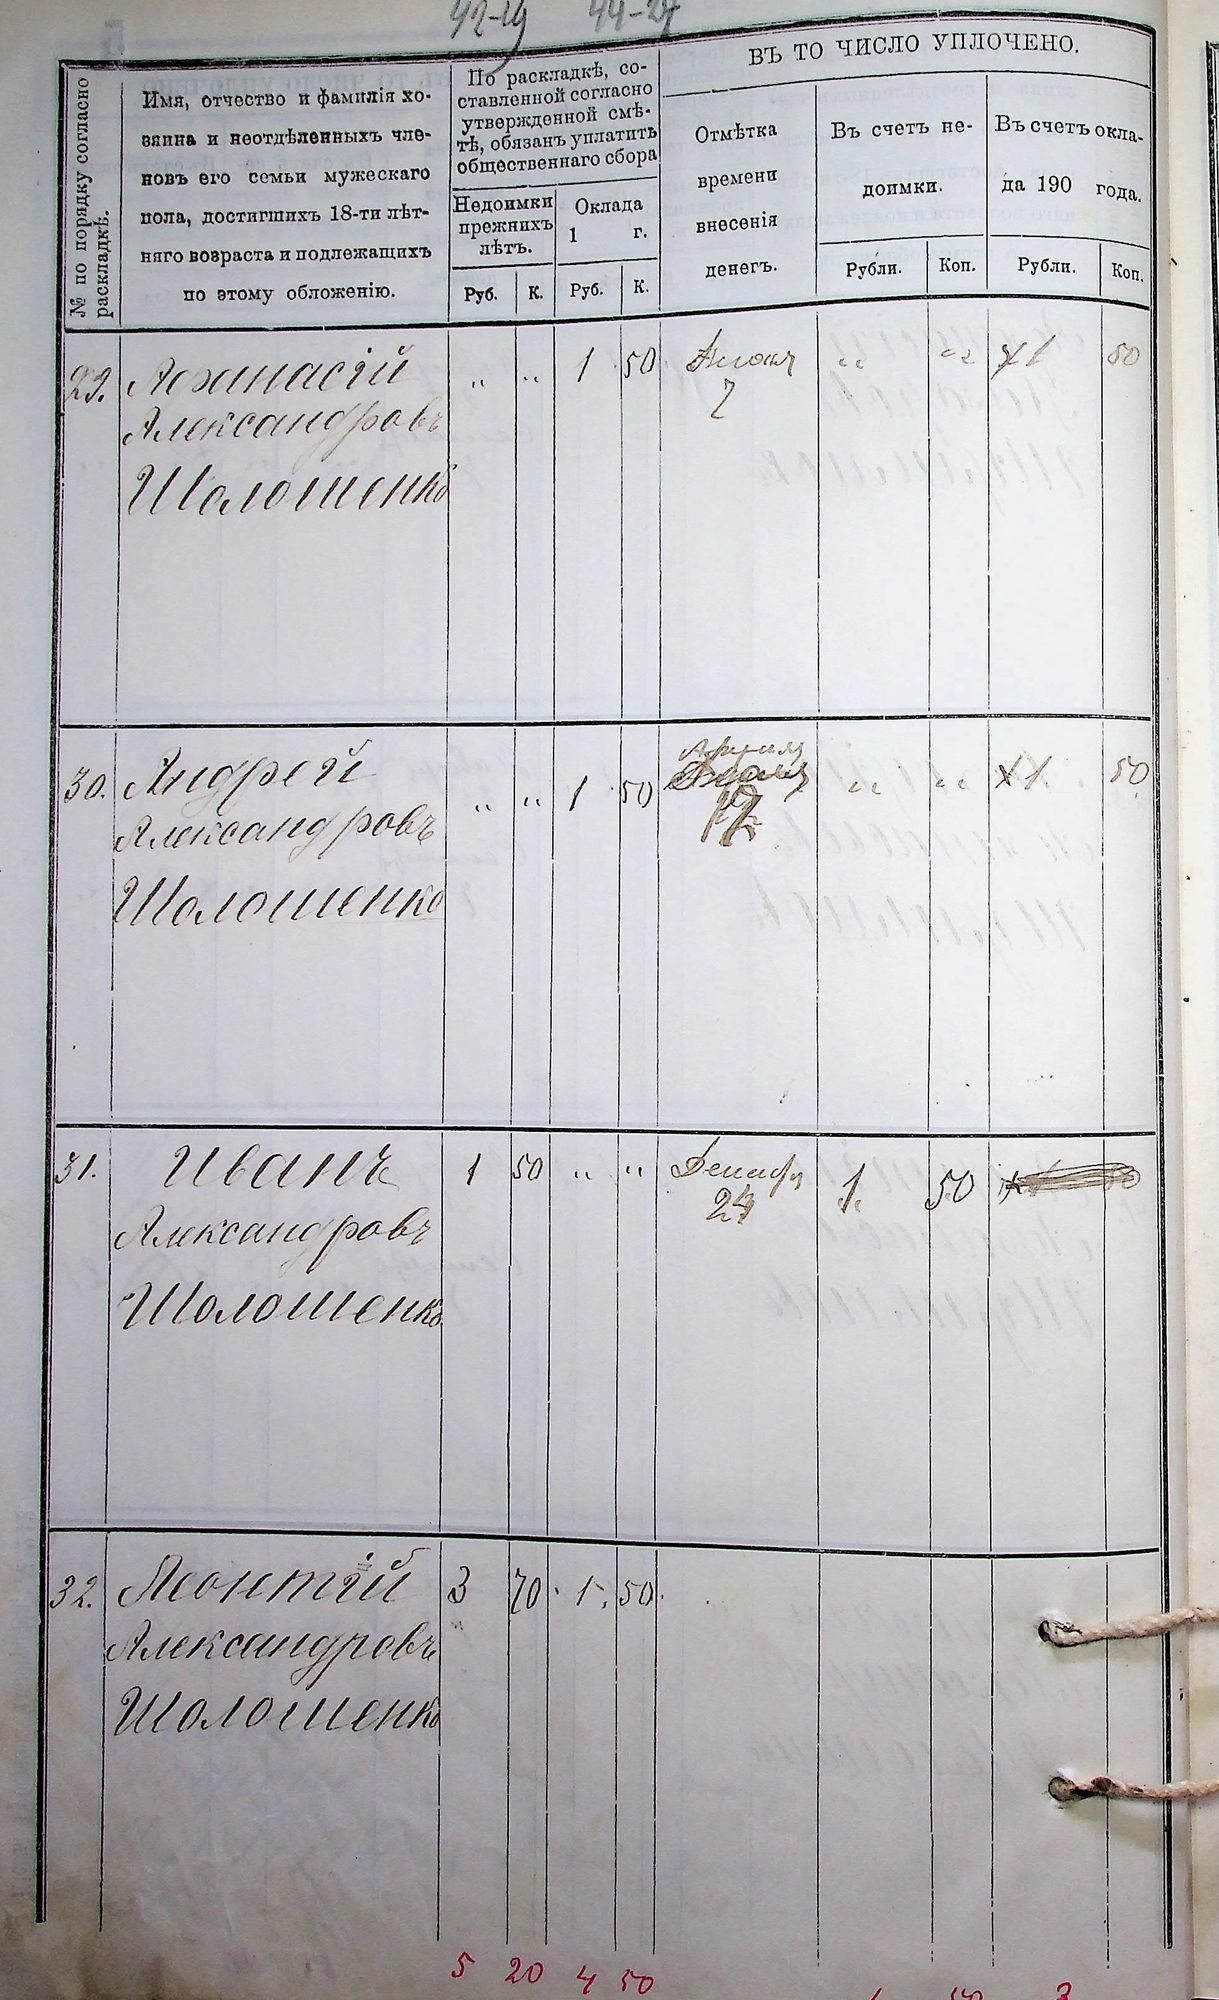 42-19 44-27
№ по порядку согласно раскладкѣ.
Имя, отчество и фамилія хо-
зяина и неотдѣленныхъ чле-
новъ его семьи мужескаго
пола, достигшихъ 18-ти лѣт-
няго возраста и подлежащихъ
по этому обложенію.
По раскладкѣ, со-
ставленной согласно
утвержденной смѣ-
тѣ, обязанъ уплатить
общественнаго сбора
Недоимки
прежнихъ
лѣтъ.
Оклада
1 г.
Руб. К. Руб. К.
ВЪ ТО ЧИСЛО УПЛОЧЕНО.
Отмѣтка
времени
внесенія
денегъ.
Въ счетъ не-
доимки.
Въ счетъ окла-
да 190 года.
Рубли. Коп. Рубли. Коп.
29. Афанасій „ „ 1 50 „ „ 1 50
7
Александровъ
Шолошенко
30. Андрей „ „ 1 50 Апрѣля „ „ 1 50
Александровъ
Шолошенко
31. Иванъ 1 50 „ „ Декабря 1 50
24
Александровъ
Шолошенко
32. Леонтій 3 70 1 50
Александровъ
Шолошенко
5 20 4 50 1 50 3